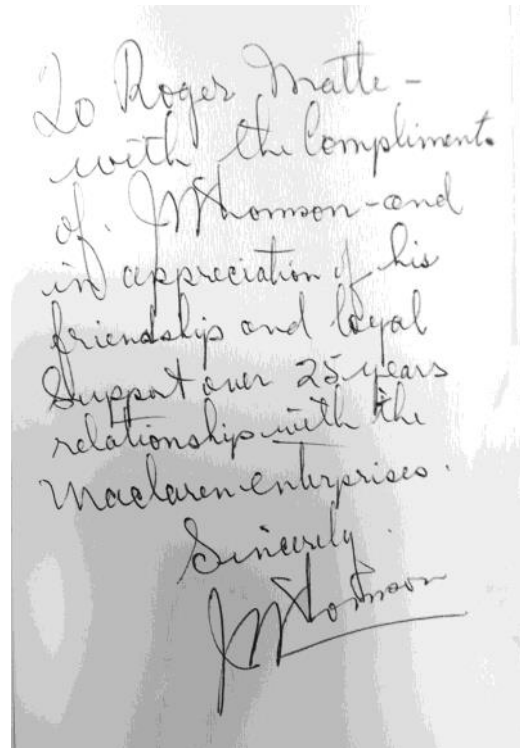 To Roger Matte -
with the Compliments
of. JN Thomson - and
in appreciation of his
friendship and loyal
Support over 25 years
relationship with the
Maclaren enterprises.
Sincerely
JN Thomson